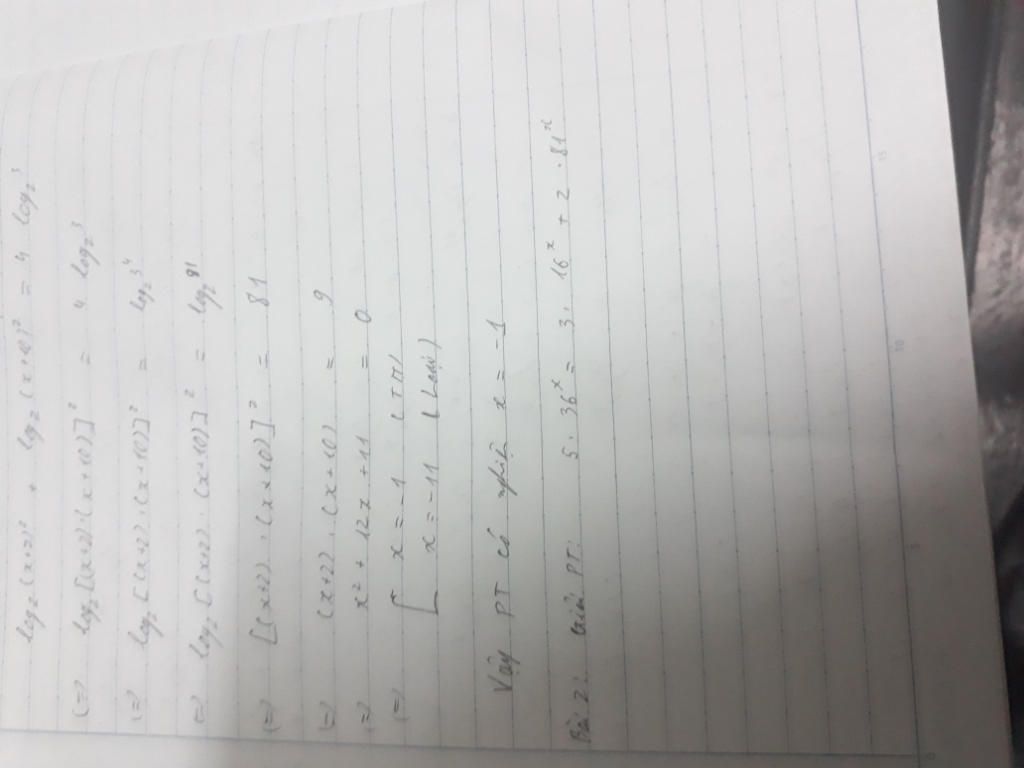 log₂(x+2)² + log₂(x+10)² = 4 log₂3
(=) log₂[(x+2).(x+10)]² = 4 log₂3
(=) log₂[(x+2).(x+10)]² = log₂3⁴
(=) log₂[(x+2).(x+10)]² = log₂81
(=) [(x+2).(x+10)]² = 81
(=) (x+2).(x+10) = 9
(=) x² + 12x + 11 = 0
(=) [ x = -1 (TM)
x = -11 (Loại)
Vậy PT có nghiệm x = -1
Bài 2: Giải PT: 5.36ˣ = 3.16ˣ + 2.81ˣ
5
10
15